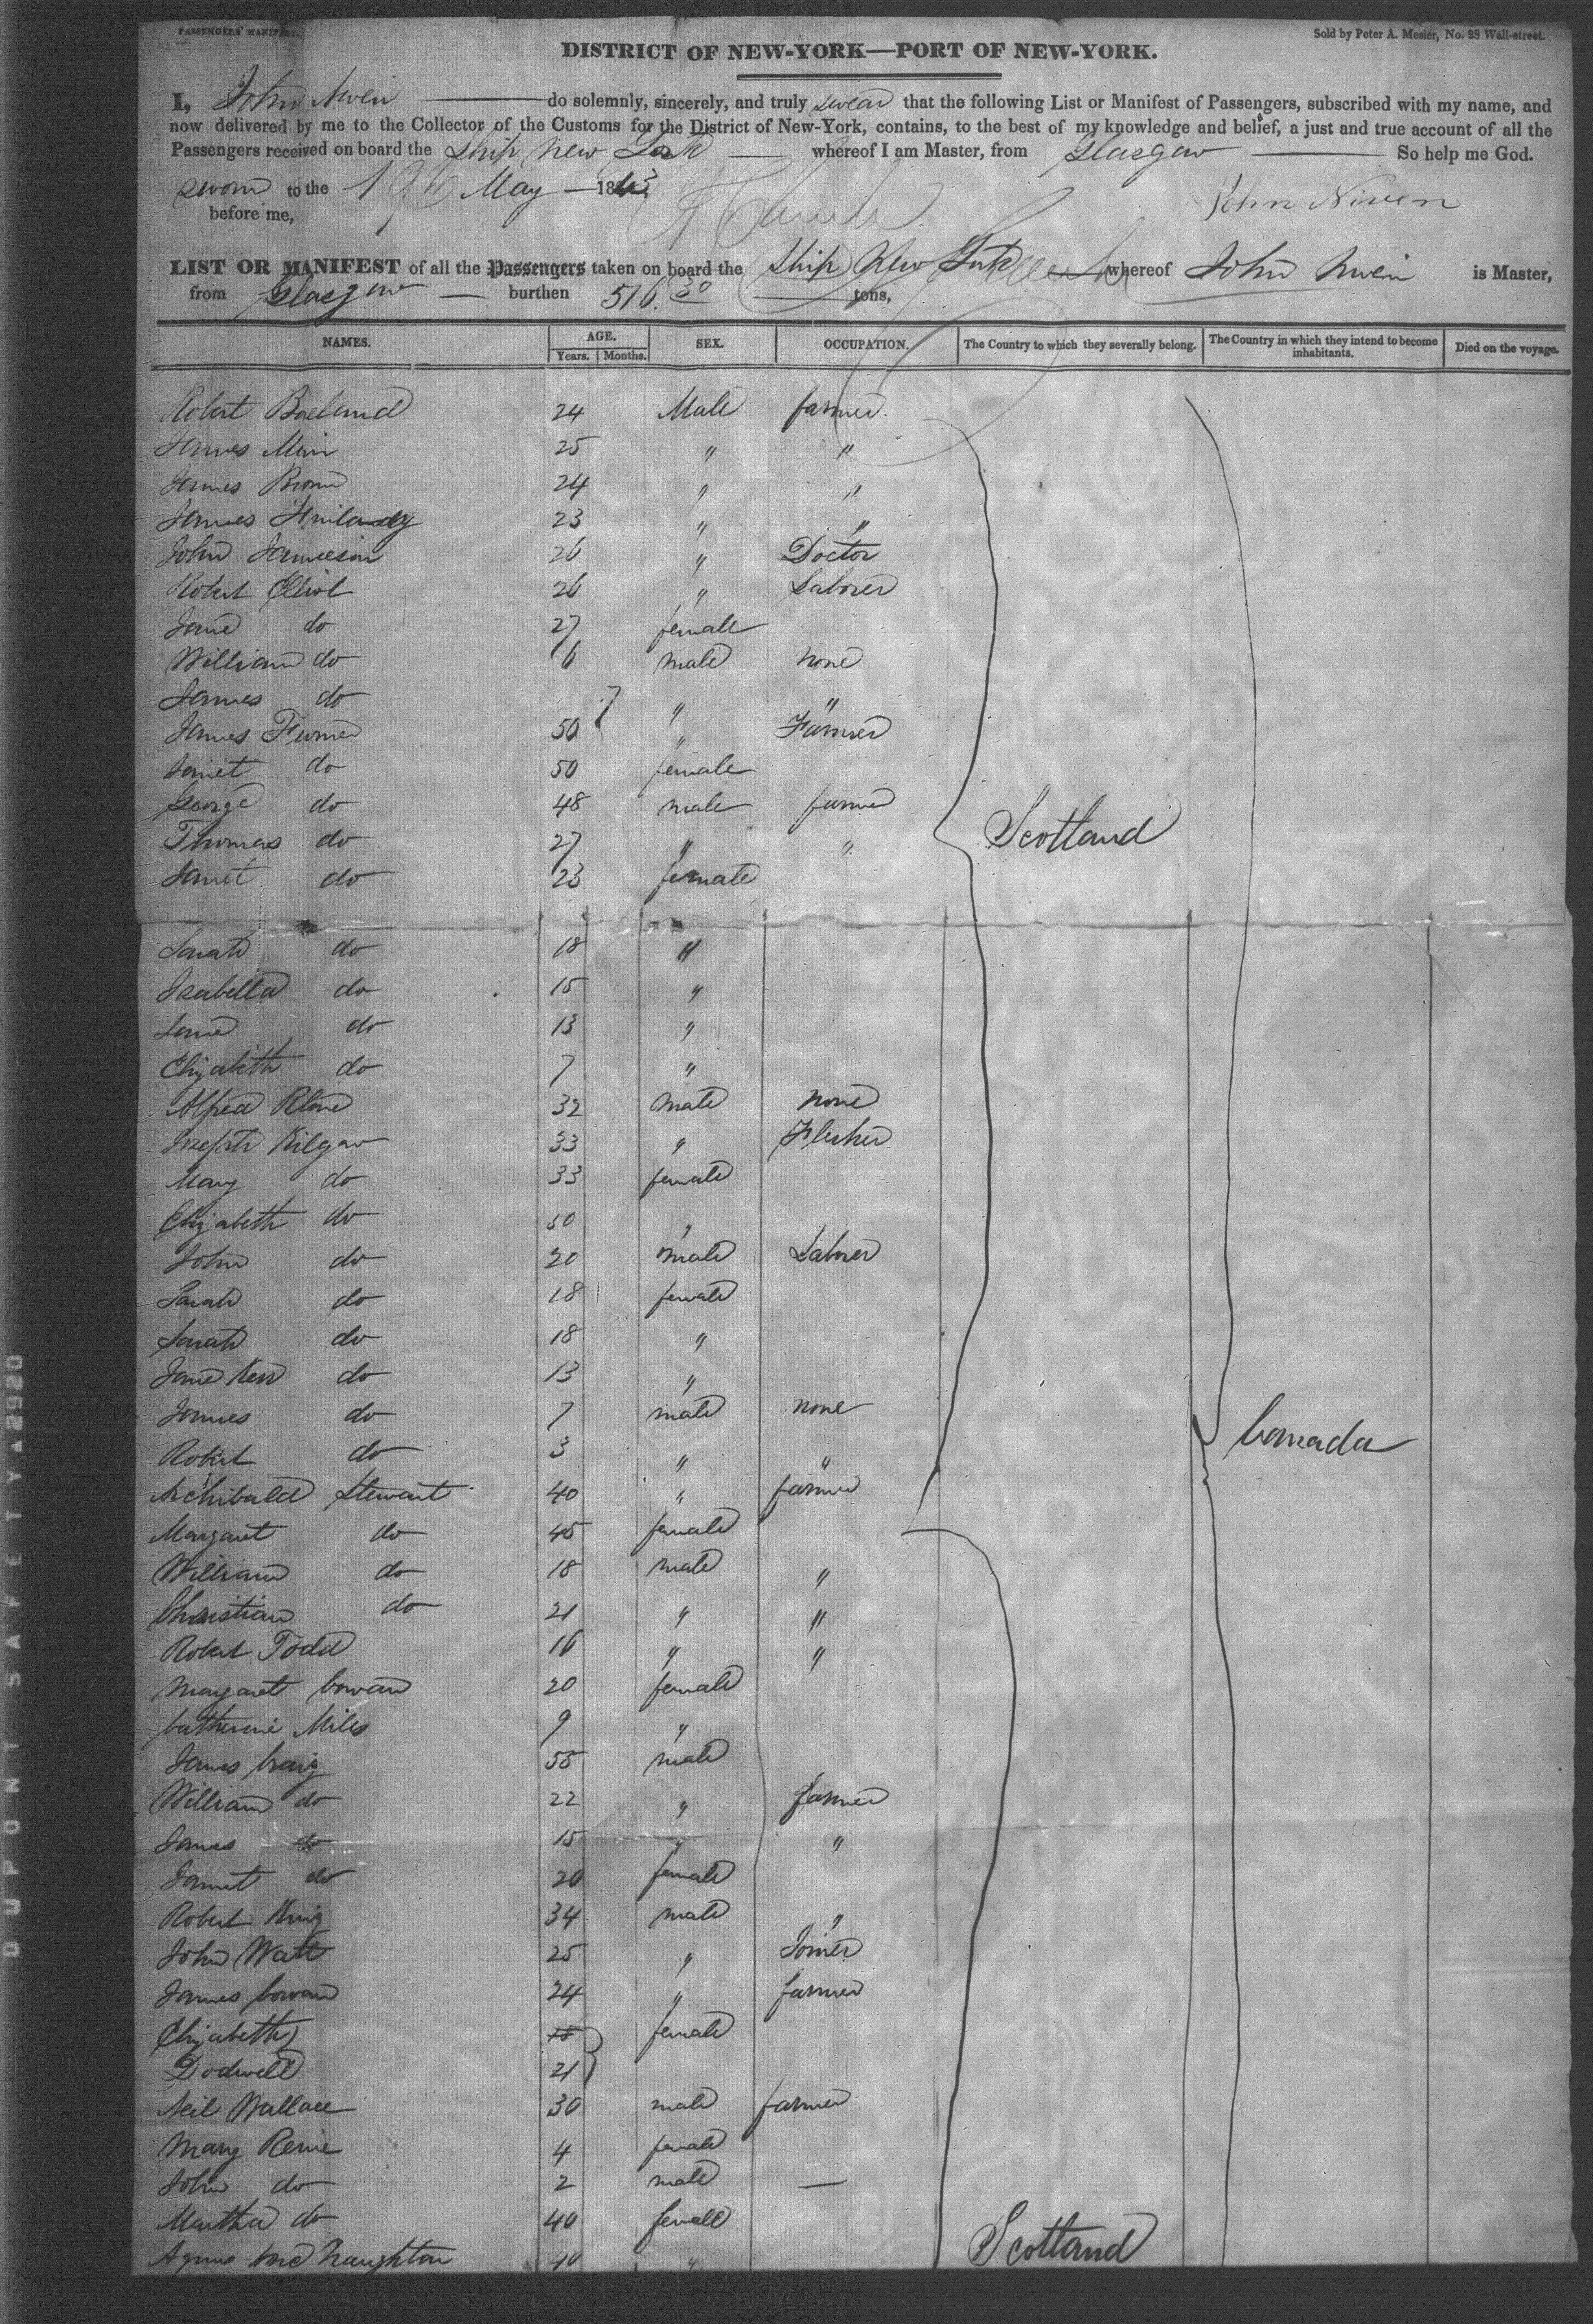 PASSENGERS' MANIFEST.
Sold by Peter A. Mesier, No. 28 Wall-street.
DISTRICT OF NEW-YORK—PORT OF NEW-YORK.
I, John Niven do solemnly, sincerely, and truly swear that the following List or Manifest of Passengers, subscribed with my name, and
now delivered by me to the Collector of the Customs for the District of New-York, contains, to the best of my knowledge and belief, a just and true account of all the
Passengers received on board the Ship New York whereof I am Master, from Glasgow So help me God.
sworn to the 19th May 1843
before me,
John Niven
LIST OR MANIFEST of all the Passengers taken on board the Ship New York whereof John Niven is Master,
from Glasgow burthen 516 30 tons,
NAMES. AGE. SEX. OCCUPATION. The Country to which they severally belong. The Country in which they intend to become inhabitants. Died on the voyage.
Years. Months.
Robert 24 Male farmer
James 25 " "
James Brown 24 " "
James 23 " "
John Jamieson 26 " Doctor
Robert Elliot 26 " Laborer
Jane do 27 female
William do 6 male none
James do 7 " "
James 50 " Farmer
Janet do 50 female
George do 48 male farmer
Thomas do 27 " " Scotland
Janet do 23 female
Sarah do 18 "
Isabella do 15 "
Jane do 13 "
Elizabeth do 7 "
Alfred 32 male none
Joseph Kilgar 33 " Flesher
Mary do 33 female
Elizabeth do 50 "
John do 20 male Laborer
Sarah do 18 female
Sarah do 18 "
Jane Kerr do 13 "
James do 7 male none
Canada
Robert do 3 " "
Archibald Stewart 40 " farmer
Margaret do 45 female
William do 18 male "
Christian do 21 " "
Robert Todd 16 " "
Margaret Cowan 20 female
Catherine Miles 9 "
James Craig 55 male
William do 22 " farmer
James do 15 " "
Janet do 20 female
Robert King 34 male "
John Watt 25 " Joiner
James Cowan 24 " farmer
Elizabeth 18 female
Dodwell 21
Neil Wallace 30 male farmer
Mary Renie 4 female
John do 2 male —
Martha do 40 female
Agnes McNaughton 40 " Scotland
DUPONT SAFETY 2920